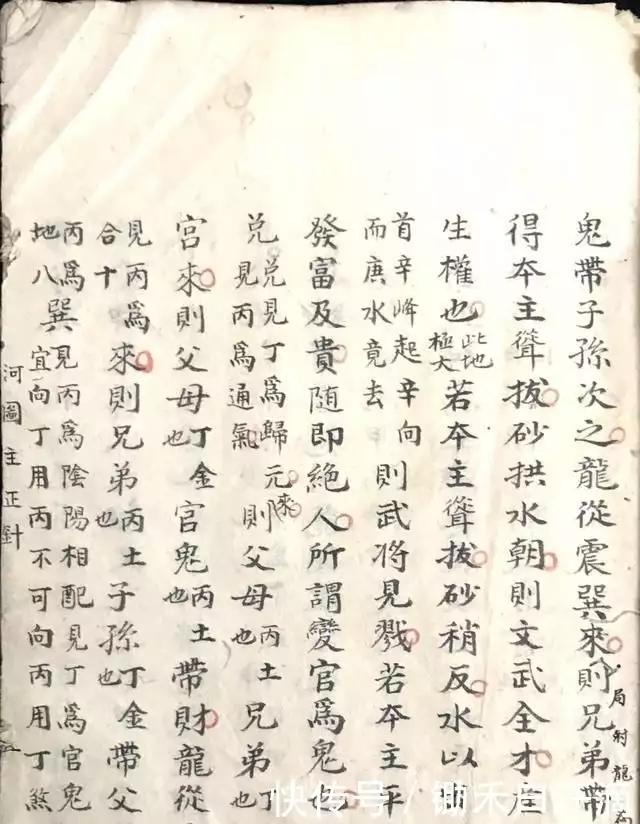 鬼帶子孫次之龍從震巽來則兄弟帶
得夲主聳拔砂拱水朝則文武全才産
生權也此地極大若夲主聳拔砂稍反水以
首辛峰起辛向而庚水竟去則武将見戮若夲主平
發富及貴隨即絶人所謂變官為鬼也
兌兌見丁為歸元來見丙為通氣則父母也丙土兄弟也丁
宮來則父母也丁金官鬼也丙土帶財龍從
見丙為合十來則兄弟也丙土子孫也丁金帶父
丙為地八巽見丙為陰陽相配見丁為官鬼宜向丁用丙不可向丙用丁煞
河圖主正針
快传号